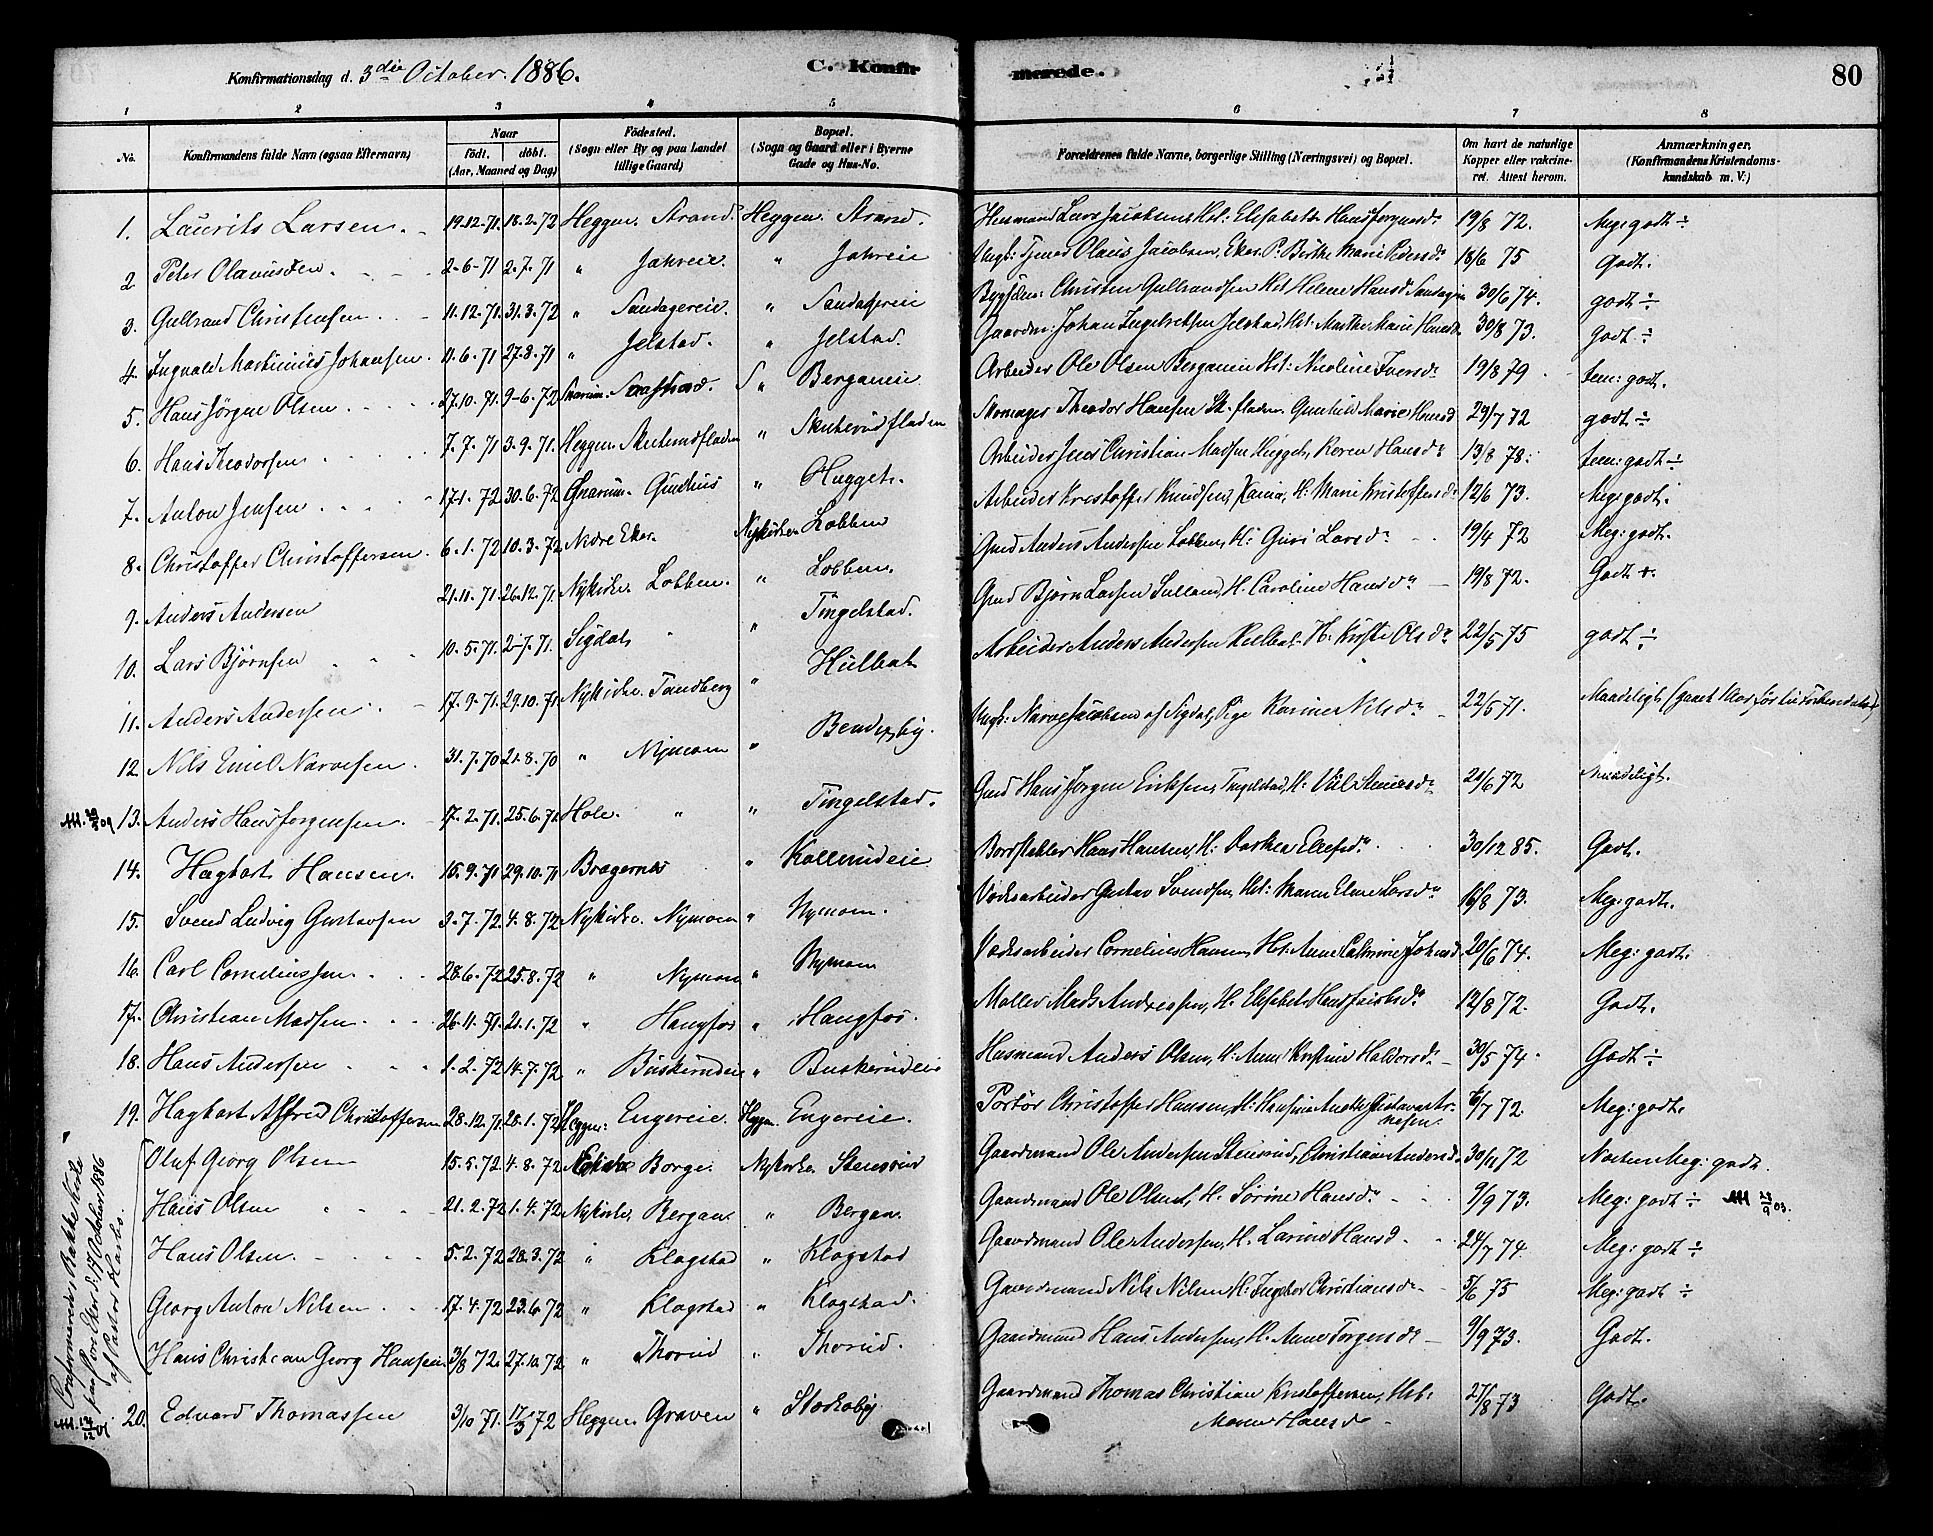 Konfirmationsdag d. 3die October. 1886.
C. Konfirmerede.
80
1 2 3 4 5 6 7 8
No.
Konfirmandens fulde Navn (ogsaa Efternavn)
Naar
födt. döbt.
(Aar, Maaned og Dag)
Födested.
(Sogn eller By og paa Landet
tillige Gaard)
Bopæl.
(Sogn og Gaard eller i Byerne
Gade og Hus-No.
Forældrenes fulde Navne, borgerlige Stilling (Næringsvei) og Bopæl.
Om havt de naturlige
Kopper eller vakcine-
ret. Attest herom.
Anmærkninger.
(Konfirmandens Kristendoms-
kundskab m. V.)
1. Laurits Larsen. 19.12.71. 18.2.72 Heggen. Strand. Heggen. Strand. Husmand Lars Jacobsen, Hst: Elisabeth Hansjørgensd. 19/8 72. Meg: godt ÷
2 Peter Olaussen. 2.6.71 2.7.71 " Jahreie. " Jahreie Ungk: Tjener Olaus Jacobsen, Eker. P. Birthe Marie Pedersd. 18/6 75 Godt.
3. Gulbrand Christensen. 11.12.71. 31.3.72 " Sandagereie. " Bygselm: Christen Gulbrandsen Hst. Helene Hansd. 30/6 74. godt ÷
4. Ingvald Martinius Johansen. 11.6.71 27.8.71 " Jelstad. " Jelstad. Gaardm: Johan Jelstad, Hst: Marthe Marie Hansd. 30/8 73. godt ÷
5. Hans Jörgen Olsen. 27.10.71. 9.6.72 S " Berganeie Arbeider Ole Olsen Berganeie Hst: Nicoline Iversd. 19/8 79 Tem: godt.
6. Hans Theodorsen. 7.7.71 3.9.71. Heggen. Skuterudfladen " Skuterudfladen Skomager Theodor Hansen Sk.fladen. Gunhild Marie Hansd 29/7 72 godt ÷
7. Anton Jensen. 17.1.72 30.6.72 Snarum. Gudhus " Hugget. Arbeider Jens Christian Madsen Hugget, Karen Hansd. 13/8 78. Tem: godt ÷
8. Christoffer Christoffersen. 6.1.72 10.3.72 Nedre Eker. Nykirken Lobben Arbeider Kristoffer Knudsen, H. Marie Kristoffersd. 12/6 73. Meg: godt.
9. Anders Andersen 21.11.71 26.12.71 Nykirke. Lobben. " Lobben. Gmd Anders Andersen Lobben, H. Guri Larsd. 19/4 72 Meg: godt.
10. Lars Björnsen 10.5.71. 2.7.71. Sigdal " Tingelstad. Gmd Björn Larsen, H. Caroline Hansd. 19/8 72. Godt
11. Anders Andersen. 17.9.71 29.10.71 Nykirke. Tandberg " Hulbak Arbeider Anders Andersen Hulbak. H. Kirsti Olsd. 22/5 75 godt ÷
12. Nils Emil Narvesen. 31.7.70 21.8.70 " Nymoen " Ungk: Narve Jacobsen af Sigdal, Pige Karine Nilsd. 22/5 71. Maadeligt
13. Anders Hansjörgensen. 17.2.71. 25.6.71 Hole. " " Tingelstad. Gmd Hans Jörgen Eriksen, Tingelstad, H. 21/6 72 Maadeligt.
14. Hagbart Hansen. 15.9.71 29.10.71 Bragernes " Kollerudeie Hans Hansen, H. Dorthea 30/12 85. Godt.
15. Svend Ludvig Gustavsen 3.7.72 4.8.72 Nykirke. Nymoen " Nymoen. Gustav Svendsen, Hst: Maren Larsd. 16/8 73. Meg: godt.
16. Carl Corneliussen. 28.6.72 25.8.72 " Nymoen " Nymoen Cornelius Hansen, Hst. Anne Cathrine Johansd. 20/6 74. Meg: godt.
17. Christian Madsen. 26.11.71. 21.1.72 " Haugfos " Haugfos. Möller Mads Andreassen, H. Elisabeth 12/8 72. Godt.
18. Hans Andersen 1.2.72 14.7.72 " Buskerudeie " Buskerudeie Husmand Anders Olsen, H. Anne Kristine Haldorsd. 30/5 74. Godt ÷
19. Hagbart Alfred Christoffersen 28.12.71 28.1.72 Heggen: Engereie. Heggen. Engereie. Christoffer Hansen, H. 6/7 72. Meg: godt.
Oluf Georg Olsen 15.5.72 4.8.72 Borge. Nykirke Stensrud Gaardmand Ole Andersen Stensrud, Christiane Andersd. 30/11 72 Næsten Meg: godt.
Hans Olsen 21.2.72 1.4.72 Nykirke. Bergan. " Bergan. Gaardmand Ole Olsen, H. Sörine Hansd. 9/9 73. Meg: godt ÷ 28/9 03.
Hans Olsen. 5.2.72 28.3.72 " Klogstad " Klogstad Gaardmand Ole Andersen, H. Larine Hansd. 24/7 74. Meg: godt ÷
Georg Anton Nilsen 17.4.72 23.6.72 " Klogstad " Klogstad. Gaardmand Nils Nilsen H. Ingebor Christiansd. 5/6 75 Meg: godt ÷
Hans Christian Georg Hansen 3/8 72. 27.10.72 " Thorud " Thorud. Gaardmand Hans Andersen, H. Anne Torgersd. 9/9 73. Godt.
Confirmerede i Bakke Kirke
paa Övre Eker d. 17 October 1886
af Pastor Harbo.
20. Edvard Thomassen 3/10 71. 17/3 72 Heggen. Graven " Stockeby Gaardmand Thomas Christian Kristoffersen, Hst: Maren Hansd. 27/8 73 Godt.